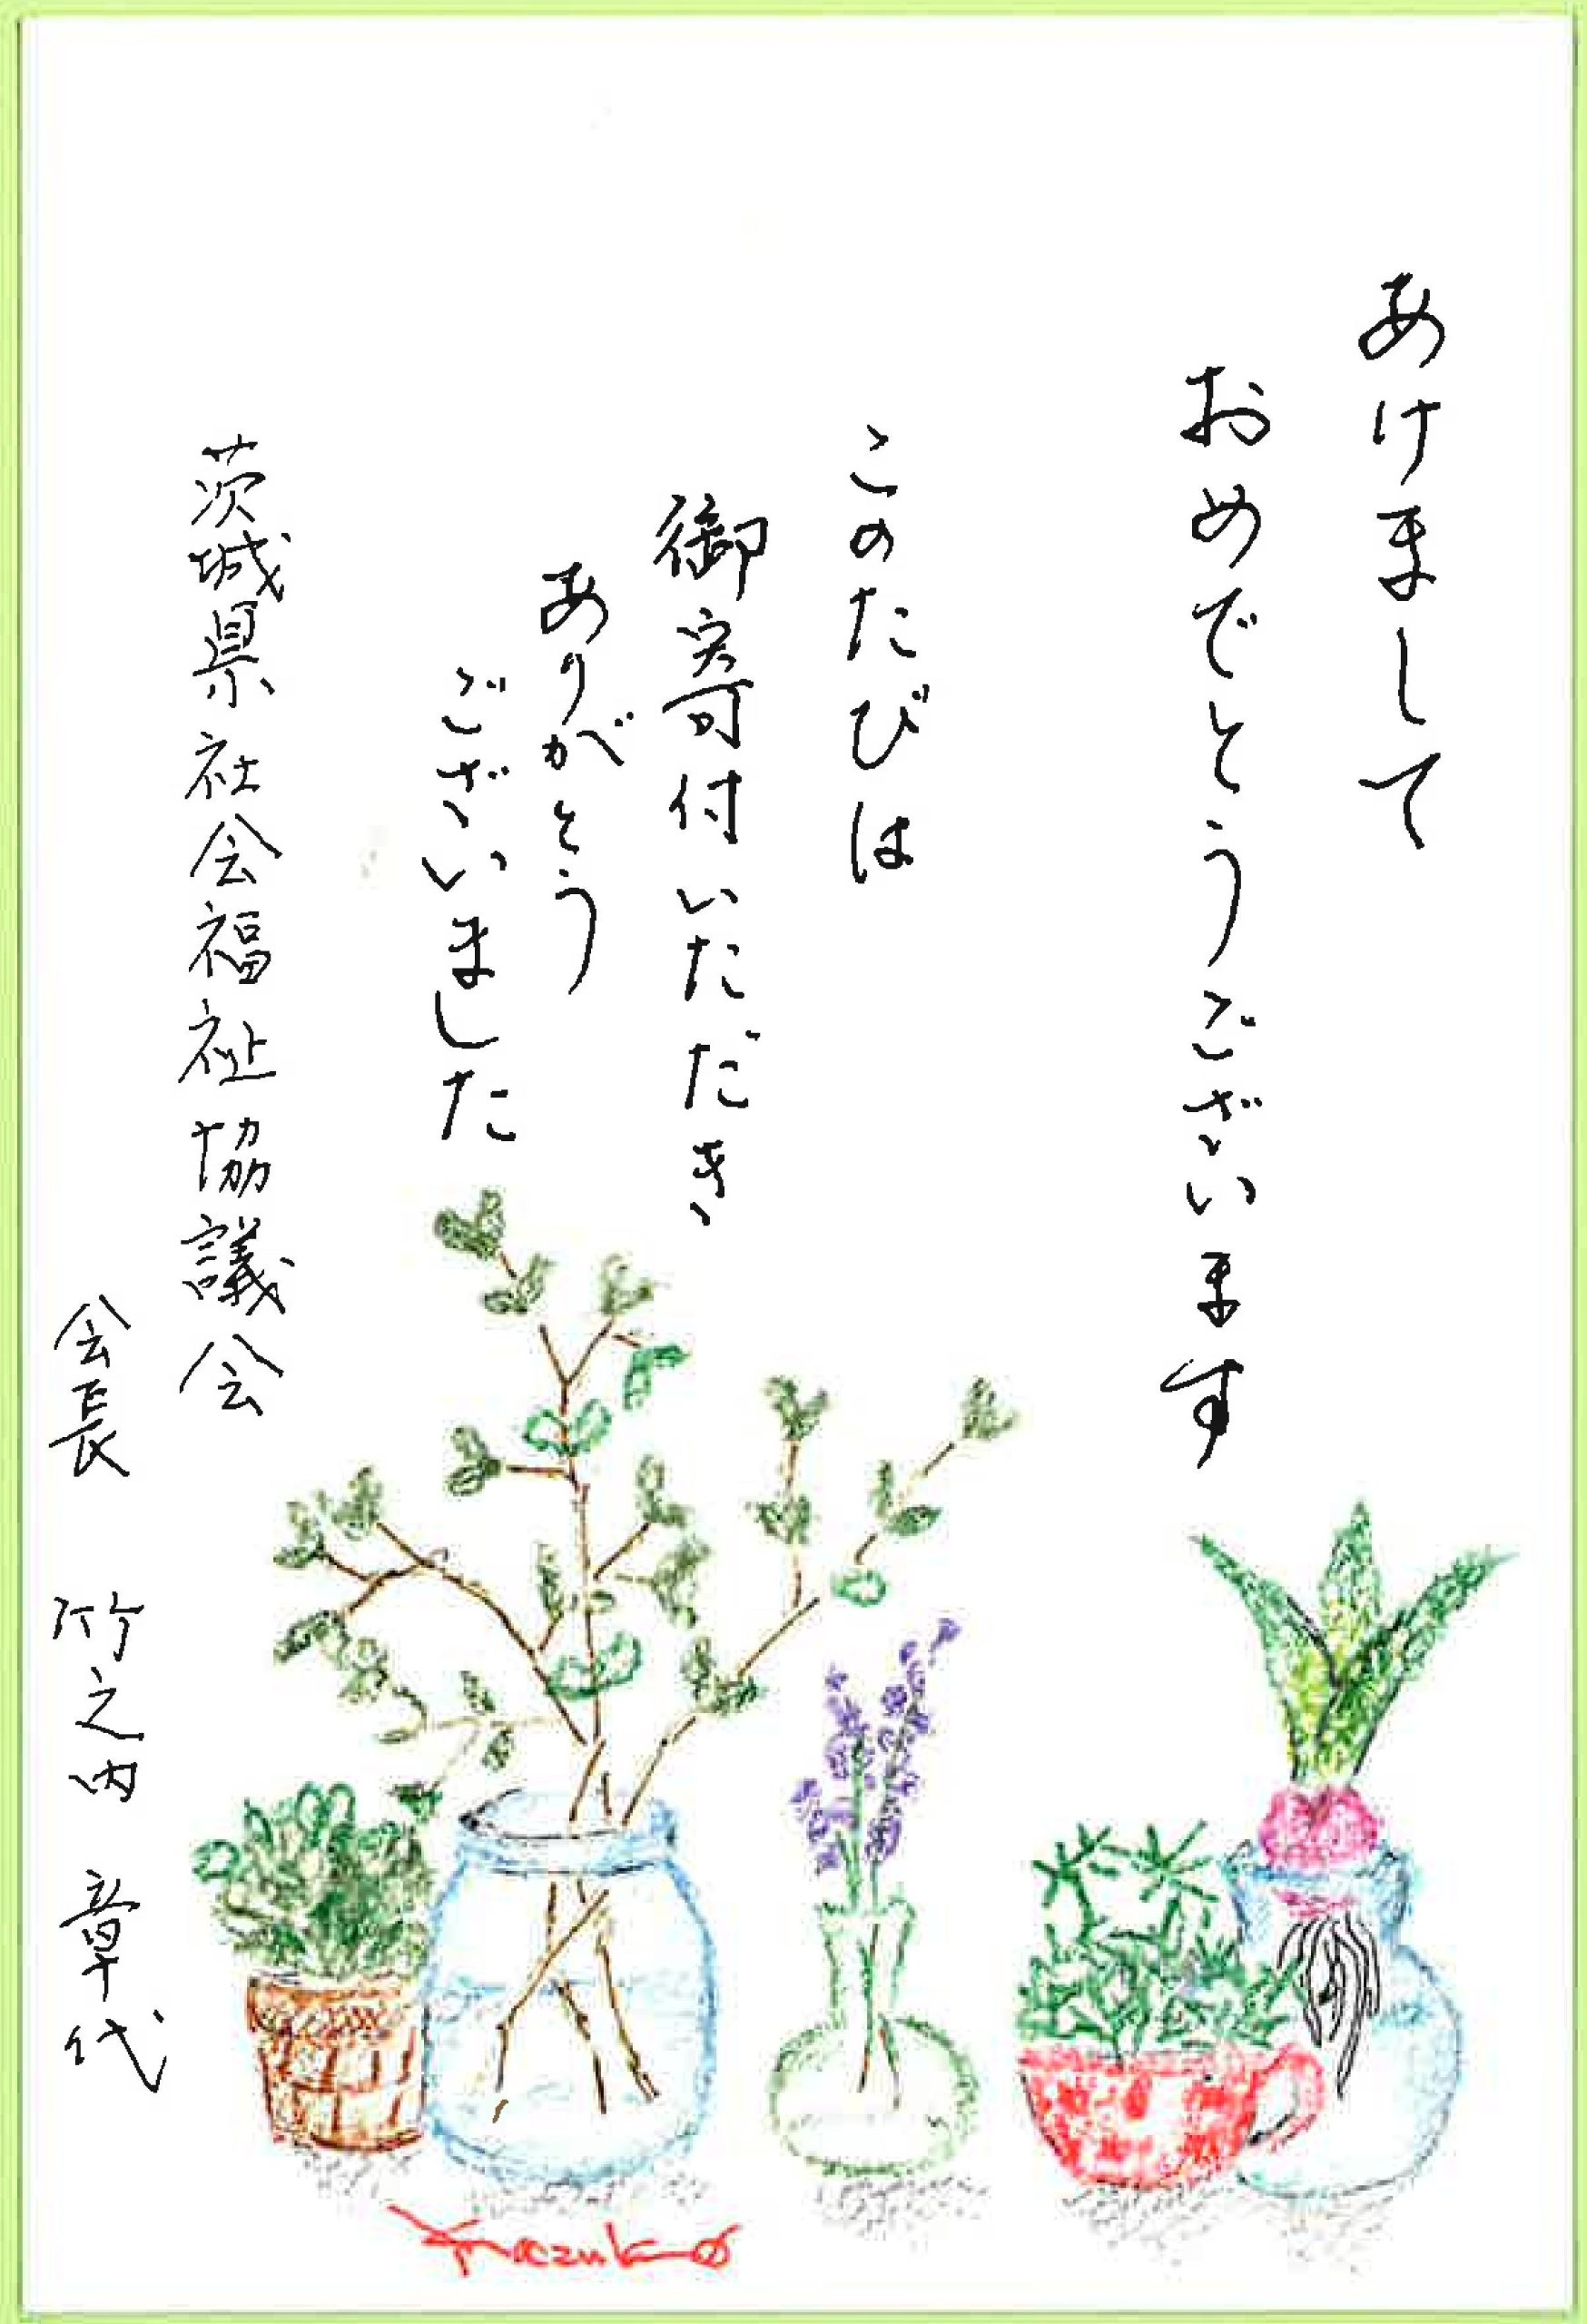 あけまして
おめでとうございます
このたびは
御寄付いただき
ありがとう
ございました
茨城県社会福祉協議会
会長 竹之内 章代
Kazuko